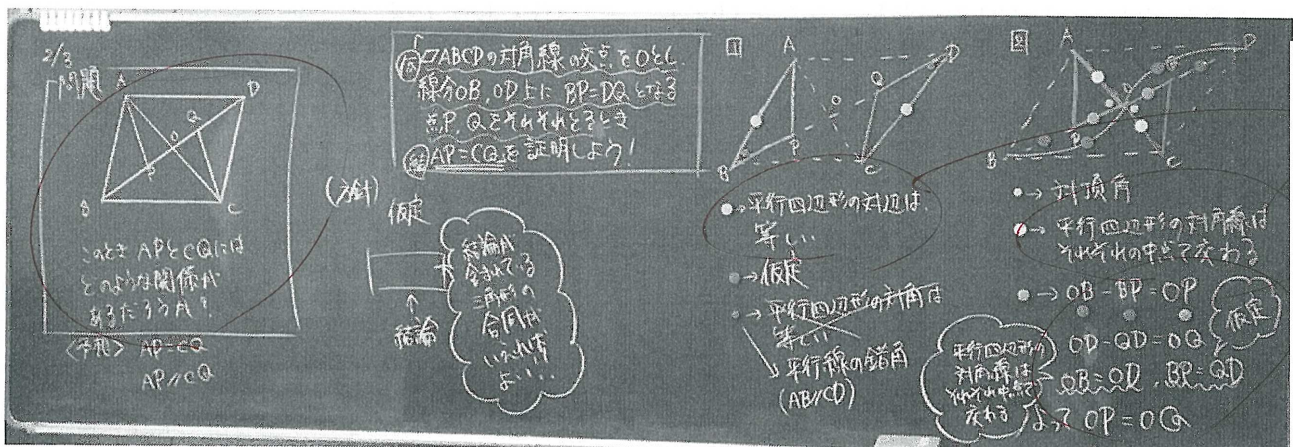 2/3
問題
A
D
O
Q
P
B
C
このとき APとCQには
どのような関係が
あるだろうか?
<予想> AP=CQ
AP//CQ
仮 ▱ABCDの対角線の交点をOとし、
線分OB, OD上に BP=DQ となる
点P, Qをそれぞれとるとき
結 AP=CQ を証明しよう!
(方針)
仮定
結論
結論が
含まれている
三角形の
合同が
いえれば
よい...
1
A
D
Q
O
P
B
C
→平行四辺形の対辺は
等しい
→仮定
→平行四辺形の対角は
等しい
→平行線の錯角
(AB//CD)
2
A
D
O
P
B
C
→対頂角
→平行四辺形の対角線は
それぞれの中点で交わる
→OB-BP=OP
OD-QD=OQ
仮定
OB=OD, BP=QD
よって OP=OQ
平行四辺形の
対角線は
それぞれ中点で
交わる